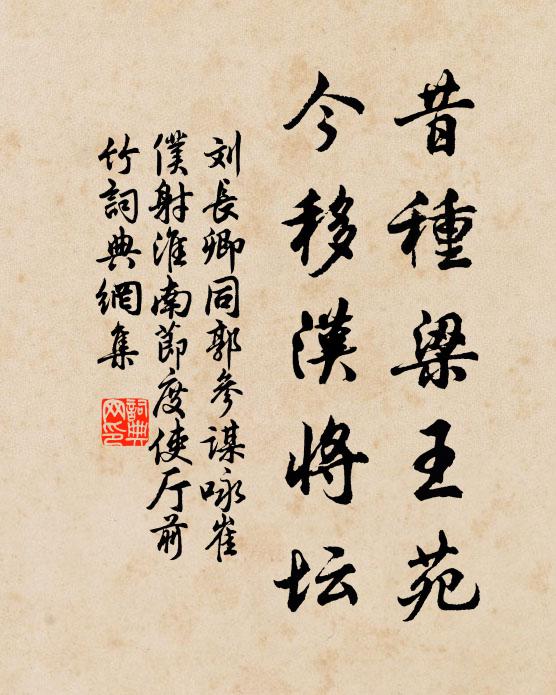 昔種梁王苑
今移漢将坛
刘長卿同郭參謀咏崔
僕射淮南節度使厅前
竹詞典網集
詞典
网印